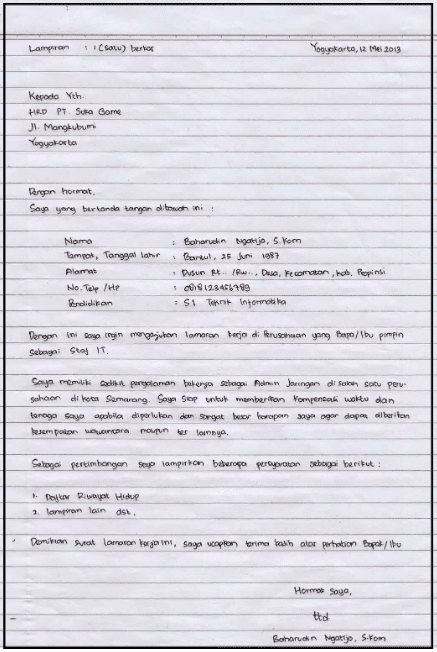 Lampiran : 1 (satu) berkas Yogyakarta, 12 Mei 2013
Kepada Yth.
HRD PT. Suka Game
Jl. Mangkubumi
Yogyakarta
Dengan hormat,
Saya yang bertanda tangan dibawah ini :
Nama : Baharudin Ngatijo, S.Kom
Tempat, Tanggal lahir : Bantul, 25 Juni 1987
Alamat : Dusun Rt.. /Rw.., Desa, Kecamatan, Kab, Propinsi
No. Telp /HP : 0818123456789
Pendidikan : S1 Teknik Informatika
Dengan ini saya ingin mengajukan lamaran kerja di Perusahaan yang Bapa/Ibu pimpin
sebagai Staf IT.
Saya memiliki sedikit pengalaman bekerja sebagai Admin Jaringan di salah satu peru-
sahaan di kota Semarang. Saya siap untuk memberikan kompensasi waktu dan
tenaga saya apabila diperlukan dan sangat besar harapan saya agar dapat diberikan
kesempatan wawancara maupun tes lainnya.
Sebagai pertimbangan saya lampirkan beberapa persyaratan sebagai berikut :
1. Daftar Riwayat Hidup
2. lampiran lain dst.
Demikian surat lamaran kerja ini, saya ucapkan terima kasih atas perhatian Bapak/Ibu
Hormat Saya,
ttd
Baharudin Ngatijo, S.Kom